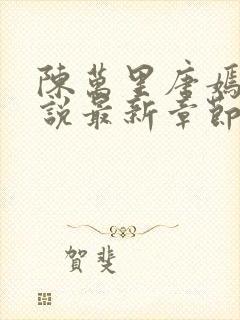 陳萬里唐嫣
說最新章節
賀斐